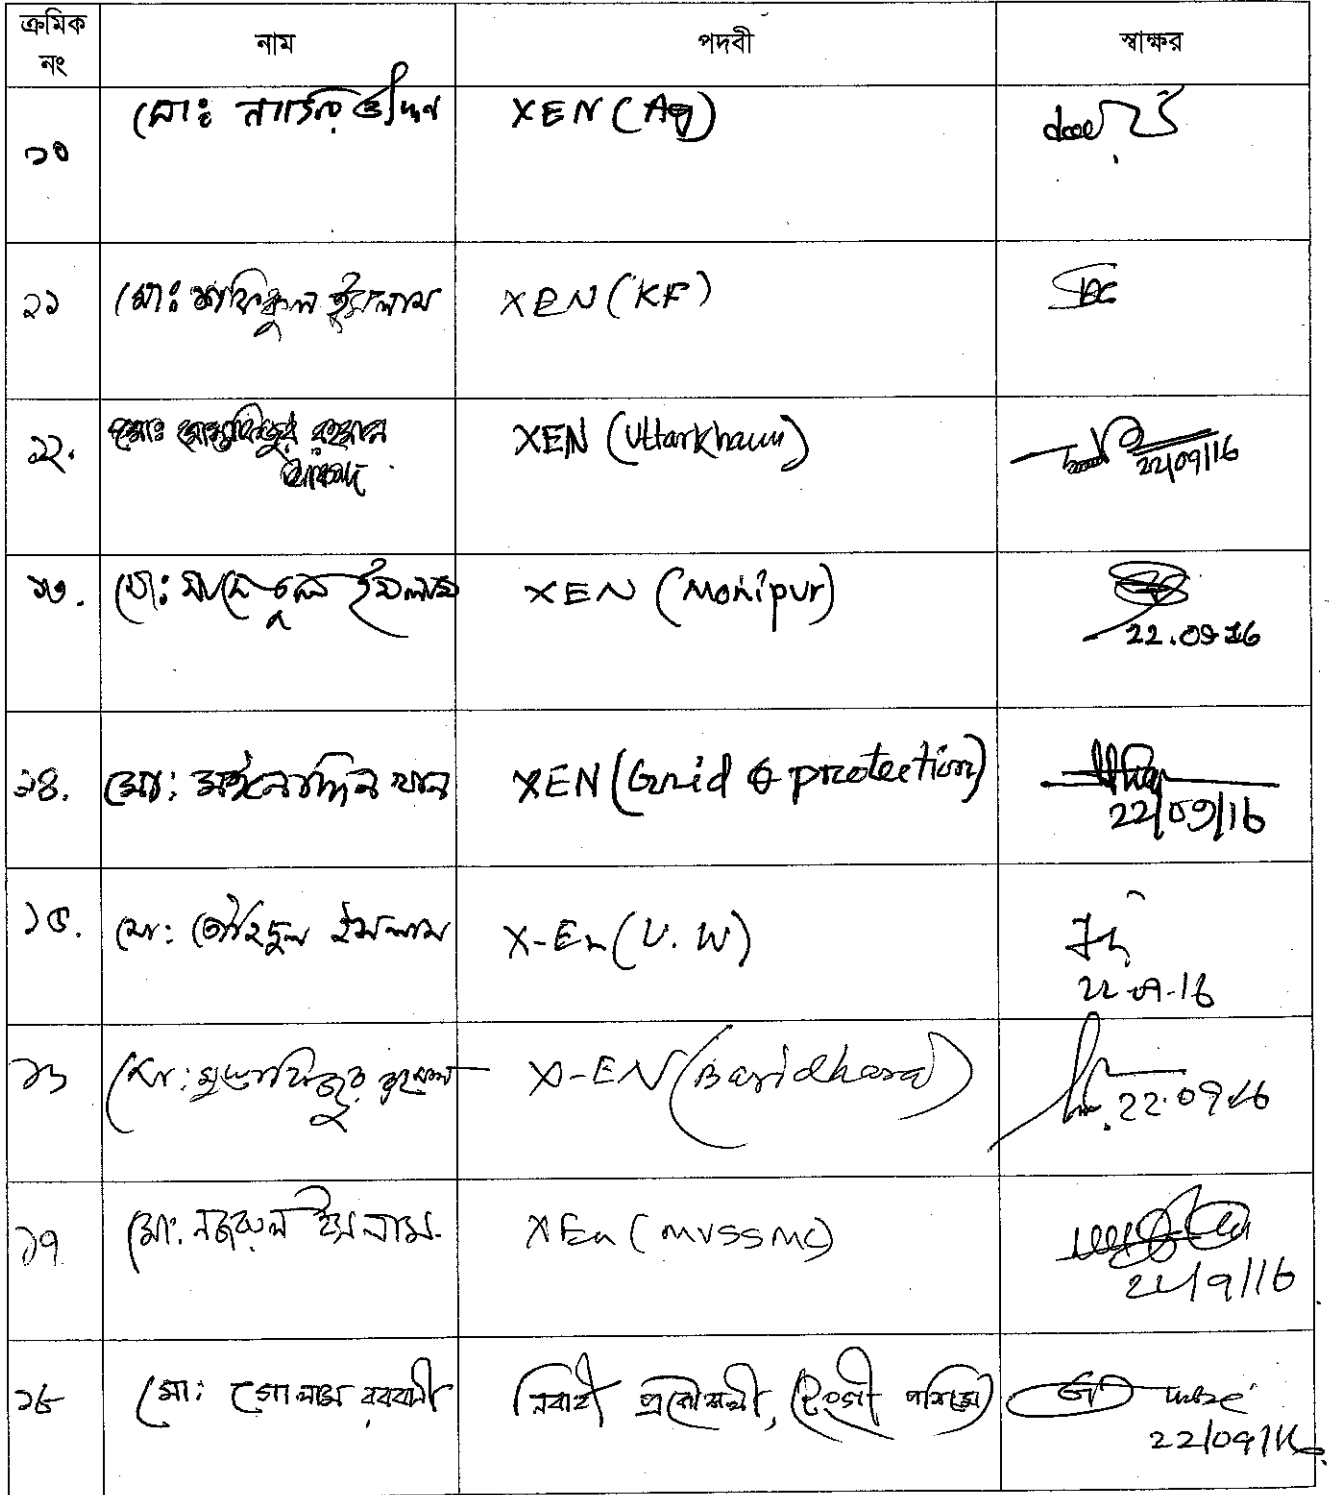 ক্রমিক নং নাম পদবী স্বাক্ষর
১০ মোঃ নাসির উদ্দিন XEN (Ag)
১১ মোঃ শফিকুল ইসলাম XEN (KF)
১২. মোঃ মোস্তাফিজুর রহমান XEN (Uttarkhaun) 22/09/16
১৩. মোঃ ইসলাম XEN (Monipur) 22.09.16
১৪. মোঃ মাইনোদ্দিন খান XEN (Grid & protection) 22/09/16
১৫. মোঃ তৌহিদুল ইসলাম X-En (U.W) 22-09-16
১৬ মোঃ মুস্তাফিজুর রহমান X-EN (Baridhara) 22.09.16
১৭ মোঃ নজরুল ইসলাম. XEn (MVSSMC) 22/9/16
১৮ মোঃ গোলাম রববানী নির্বাহী প্রকৌশলী, (টংগী পশ্চিম) 22/09/16